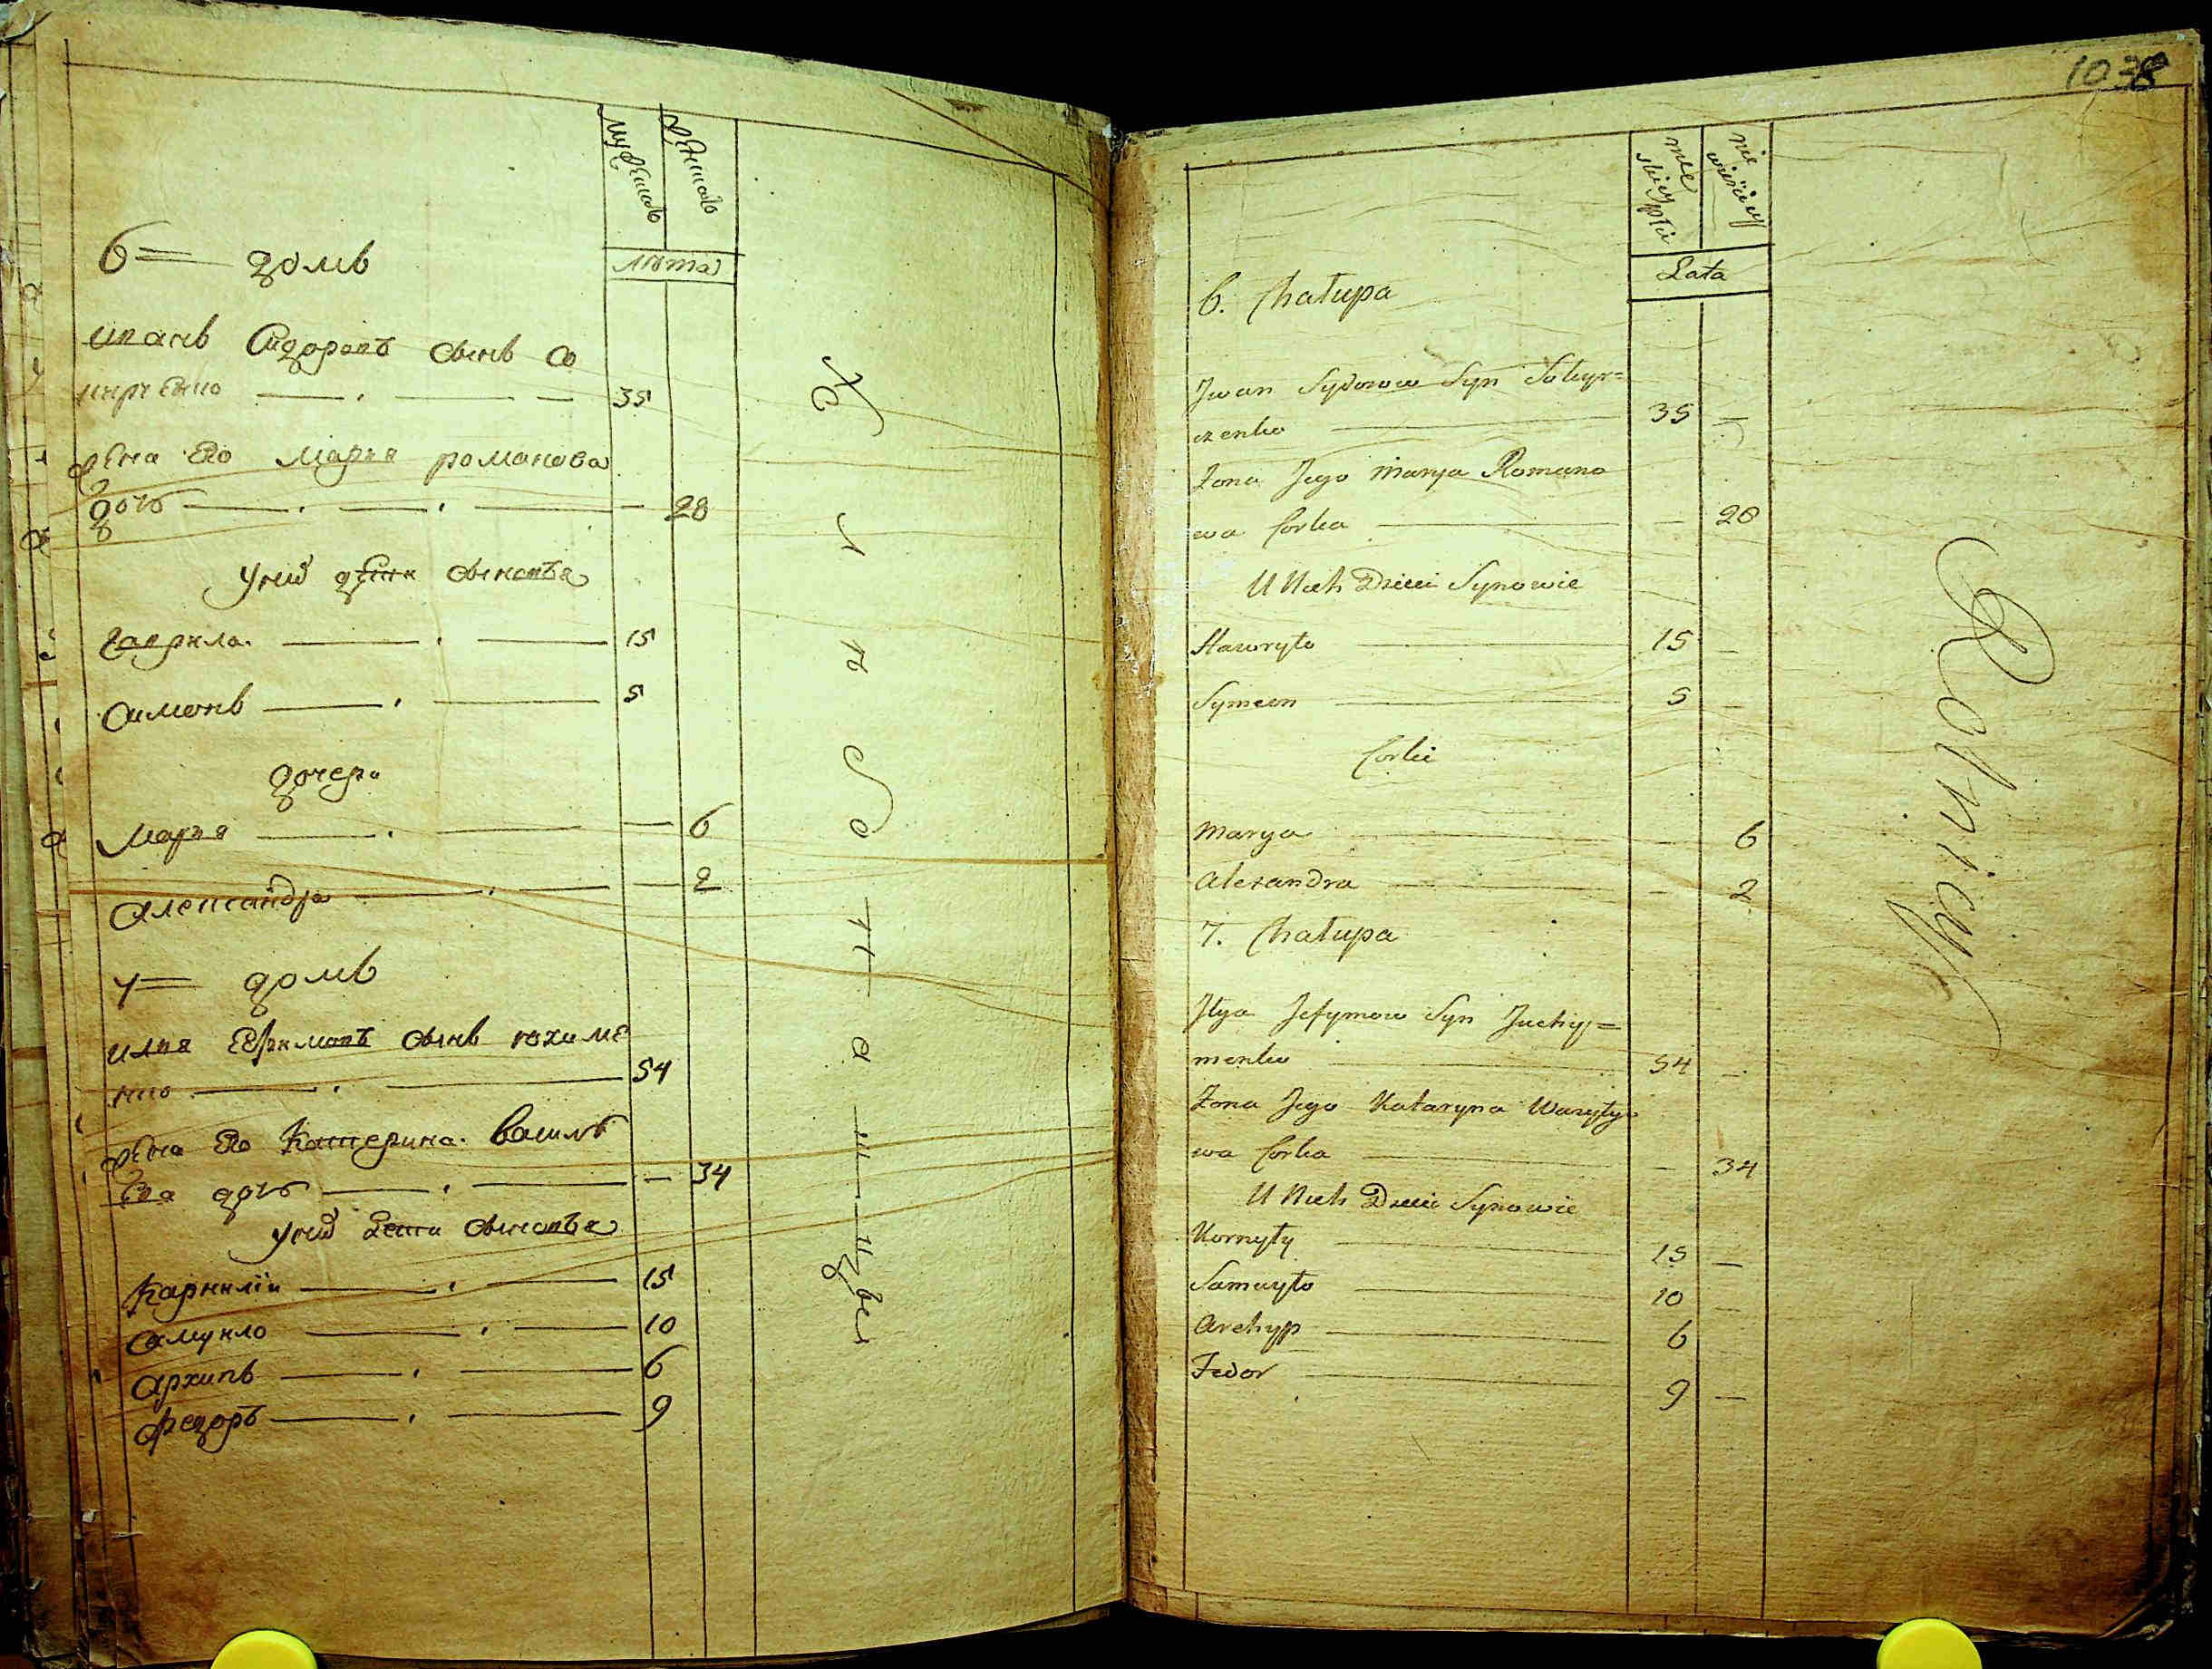 мужска
женска
лѣта
6 = домъ
иванъ Сидоровъ сынъ со
кирченко 35
жена его Марья романова
дочь — 28
У них дети сыновья
Гаврила 15
Симонъ 5
дочери
Марья — 6
Александра — 2
7 = домъ
илья Ефимовъ сынъ юхиме
нко 54
жена его Катерина Василь
ева дочь — 34
У них дети сыновья
Карнилiй 15
Самуило 10
Архипъ 6
Федоръ 9
Хлѣбопашцы
1038
męskiey płci
niewieściey
Lata
6. Chałupa
Jwan Sydorow Syn Sokyr=
czenko 35 —
Żona Jego Marya Romano
wa Corka — 28
U Nich Dzieci Synowie
Hawryło 15 —
Symeon 5 —
Corki
Marya — 6
Alexandra — 2
7. Chałupa
Jlya Jefymow Syn Juchy=
menko 54 —
Żona Jego Kataryna Wasyly=
wa Corka — 34
U Nich Dzieci Synowie
Kornyły 15 —
Samuyło 10 —
Archyp 6
Fedor 9 —
Rolnicy